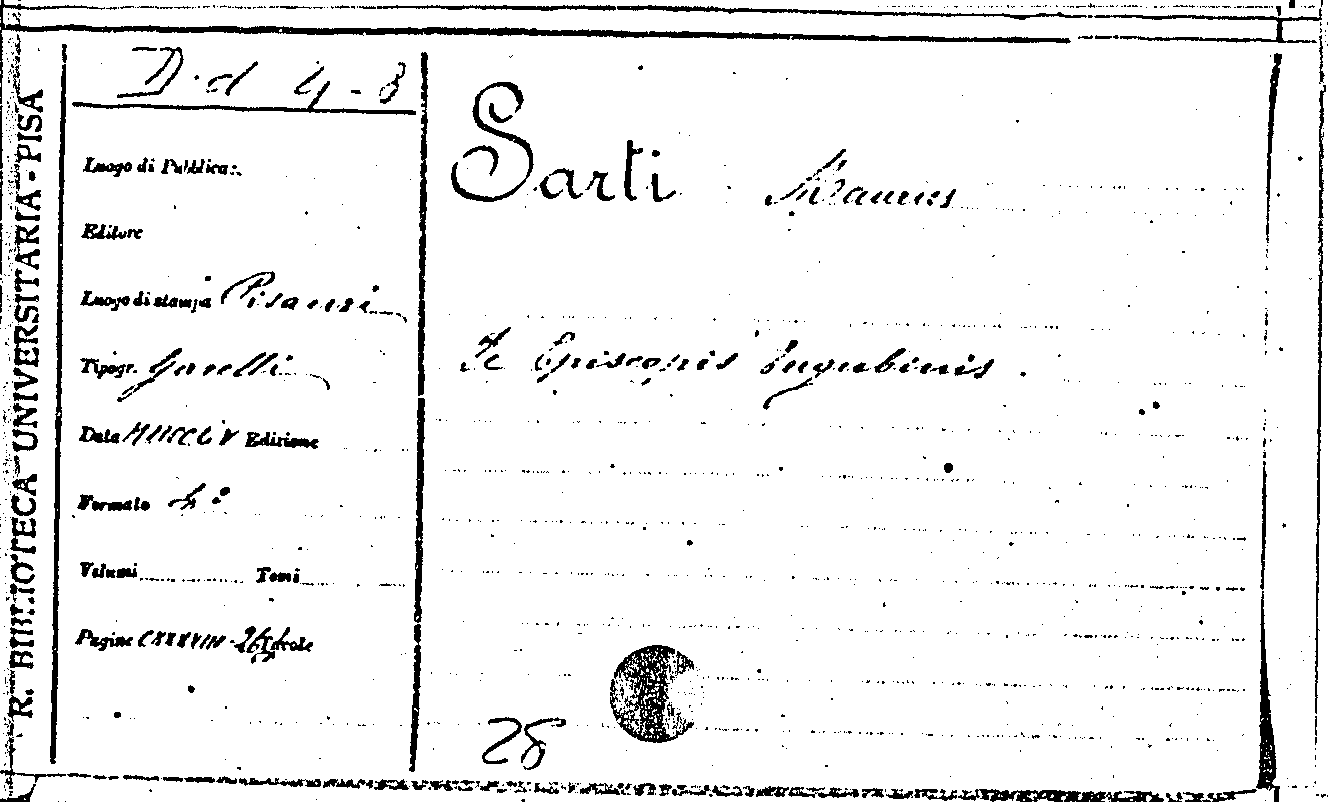 R. BIBLIOTECA UNIVERSITARIA - PISA
D. d 4 - 8
Luogo di Pubblicaz.
Editore
Luogo di stampa Pisauri
Tipogr. Gavelli
Data MDCCLV Edizione
Formato 4º
Volumi Tomi
Pagine CXXXVIII Tavole
Sarti Maurus
De Episcopis Eugubinis.
28